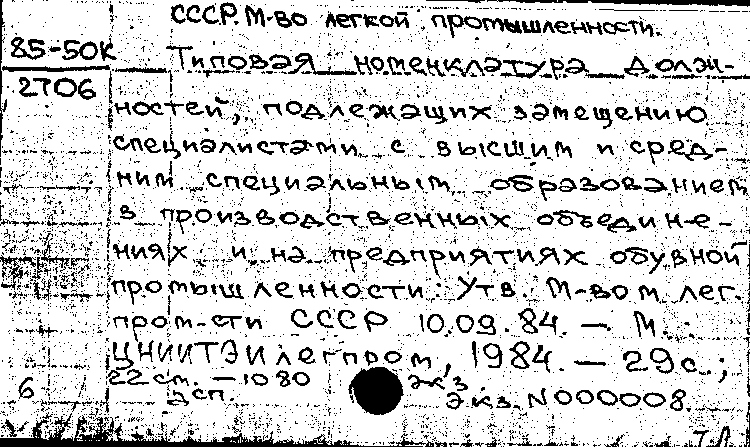 СССР. М-во легкой промышленности.
85-50К
Типовая номенклатура долж-
2706
ностей, подлежащих замещению
специалистами с высшим и сред-
ним специальным образованием
в производственных объедине-
ниях и на предприятиях обувной
промышленности: Утв. М-вом лег.
пром-сти СССР 10.09.84. — М.:
ЦНИИТЭИлегпром, 1984. — 29 с.;
6
22 см. — 1080 экз.
Экз. N000008.